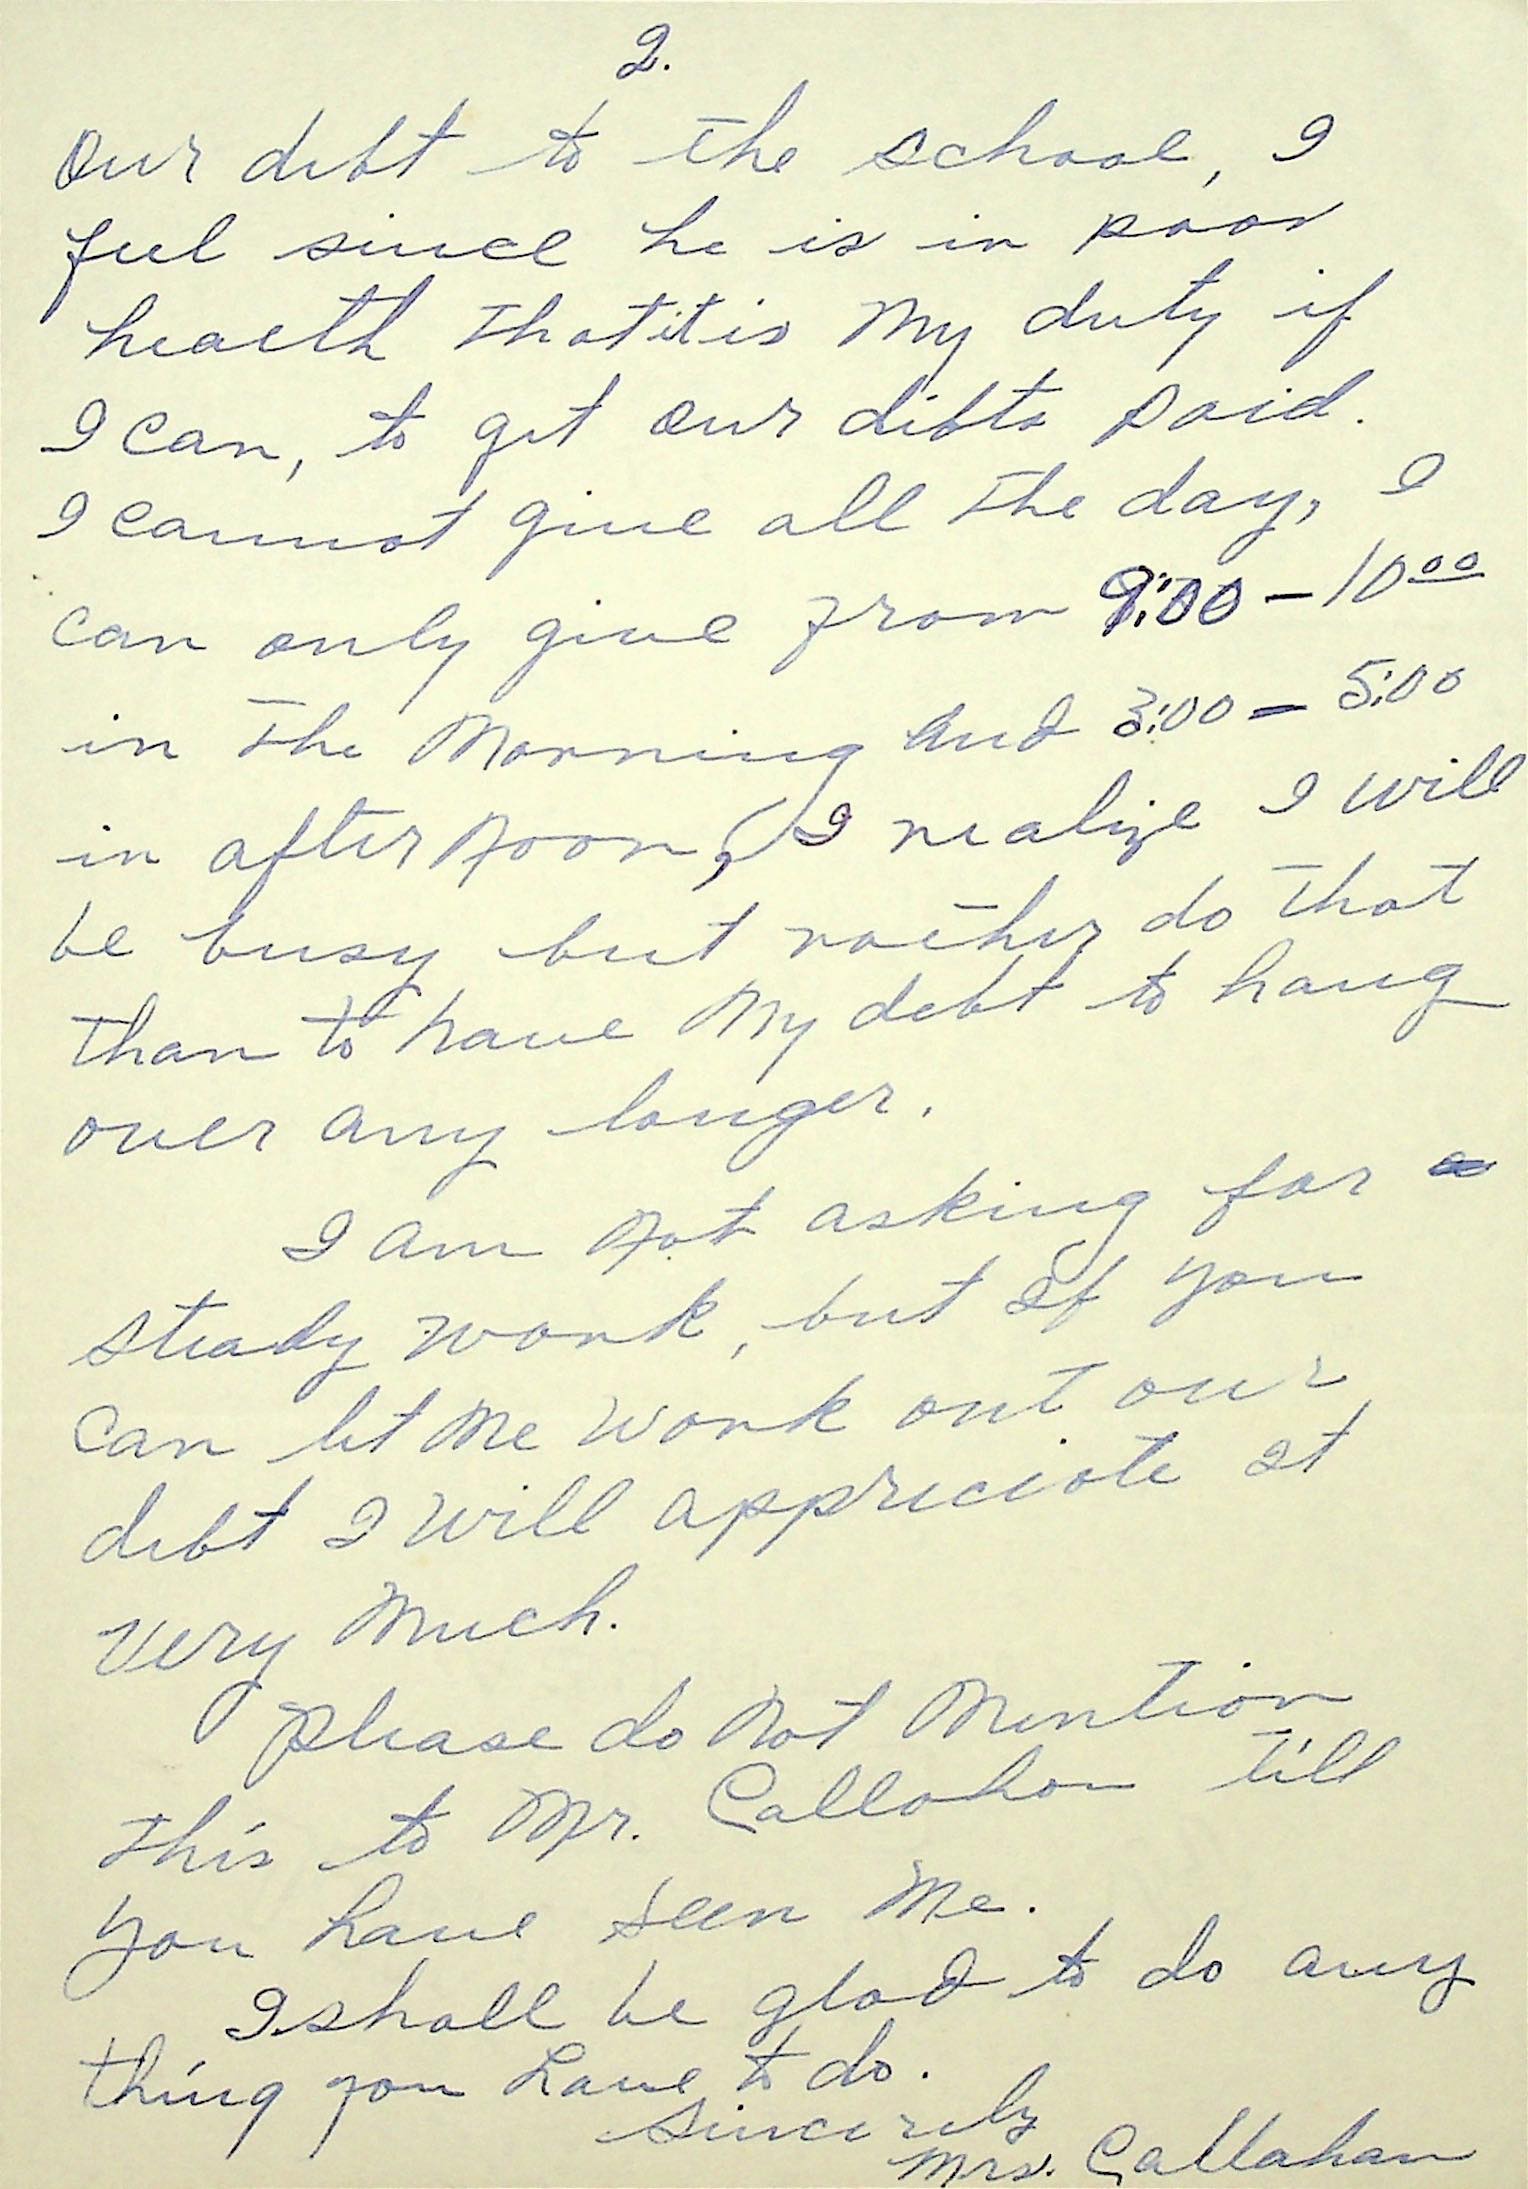 2.
Our debt to the school, I
feel since he is in poor
health that it is my duty if
I can, to get our debts paid.
I cannot give all the day, I
can only give from 9:00 - 10 00
in the Morning and 3:00 - 5:00
in after Noon, I realize I will
be busy but rather do that
than to have my debt to hang
over any longer.
I am Not asking for
steady work, but If you
can let me work out our
debt I will appreciate It
very Much.
Please do Not Mention
this to Mr. Callahan till
you have seen Me.
I shall be glad to do any
thing you have to do.
Sincerely
Mrs. Callahan